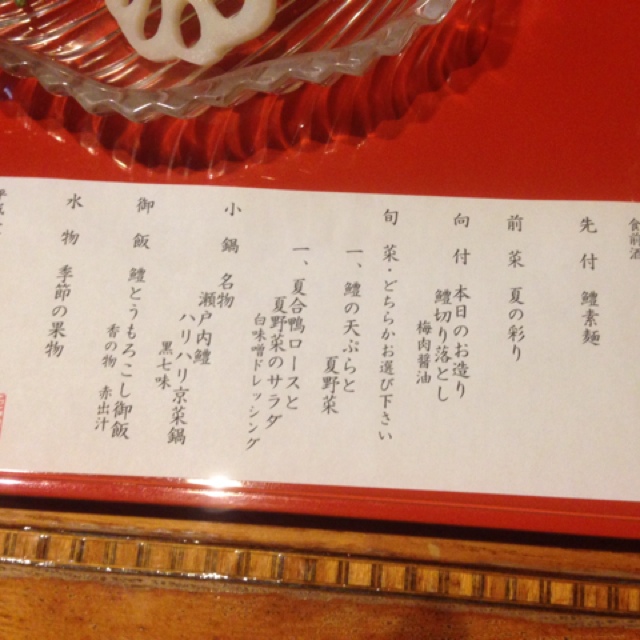 食前酒
先付 鱧素麺
前菜 夏の彩り
向付 本日のお造り
鱧切り落とし
梅肉醤油
旬菜・どちらかお選び下さい
一、鱧の天ぷらと
夏野菜
一、夏合鴨ロースと
夏野菜のサラダ
白味噌ドレッシング
小鍋 名物
瀬戸内鱧
ハリハリ京菜鍋
黒七味
御飯 鱧とうもろこし御飯
香の物 赤出汁
水物 季節の果物